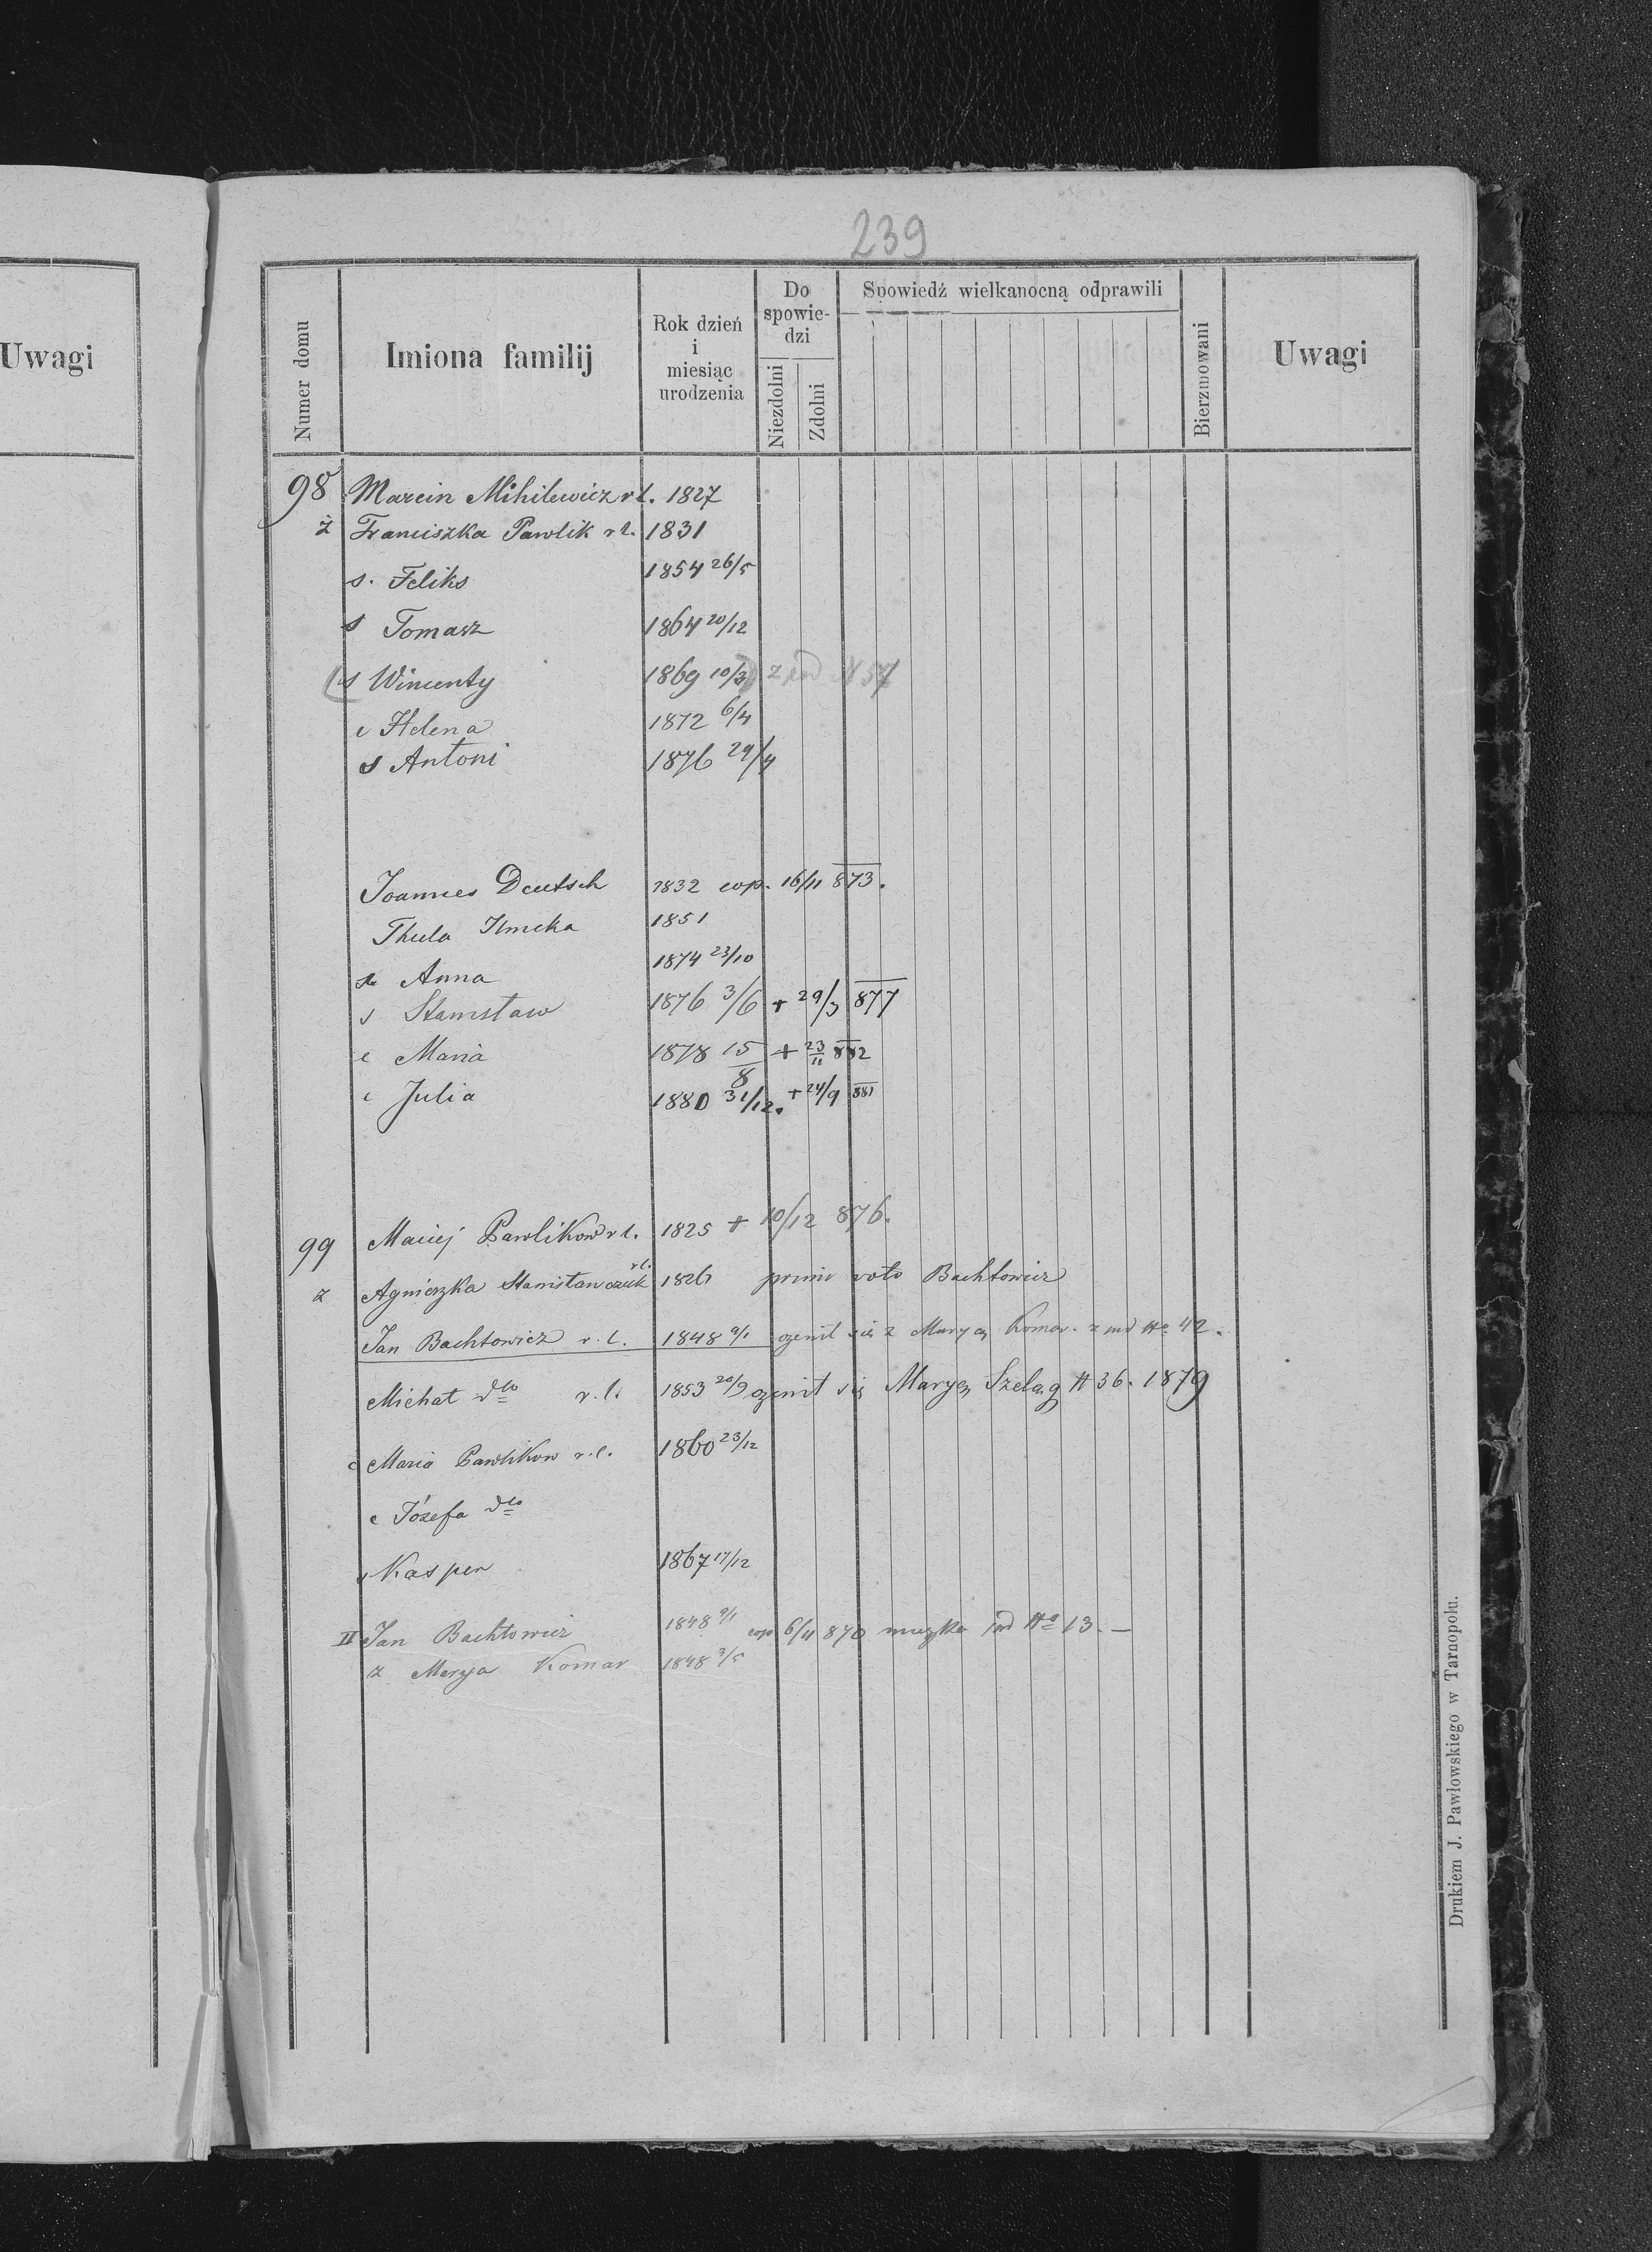 239
Uwagi
Numer domu
Imiona familij
Rok dzień i miesiąc urodzenia
Do spowiedzi
Niezdolni
Zdolni
Spowiedź wielkanocną odprawili
Bierzmowani
Uwagi
98 Marcin Mihilewicz r l. 1827
ż Franciszka Pawlik r l. 1831
s. Feliks 1854 26/5
s Tomasz 1864 20/12
(s Wincenty 1869 10/3) z pod N 57
c Helena 1872 6/4
s Antoni 1876 29/4
Joannes Deutsch 1832 cop. 16/11 873.
Thecla 1851
Anna 1874 23/10
s Stanisław 1876 3/6 + 29/3 877
c Maria 1878 15/8 + 23/11 882
c Julia 1880 31/12. + 24/9 881
99 Maciej Pawlików r l. 1825 + 10/12 876.
ż Agnieszka Stanisławczuk r l. 1826 primo voto Bachtowicz
Jan Bachtowicz r. l. 1848 9/1 ożenił się z Maryą Komar. z pod No 42.
Michał dto r. l. 1853 20/9 ożenił się Maryą Szeląg N 36. 1879
c Maria Pawlikow r. l. 1860 23/12
c Józefa dto
s Kasper 1867 17/12
II Jan Bachtowicz 1848 9/1 cop 6/4 870 mieszka pod No 13. —
ż Marya Komar 1848 3/5
Drukiem J. Pawłowskiego w Tarnopolu.